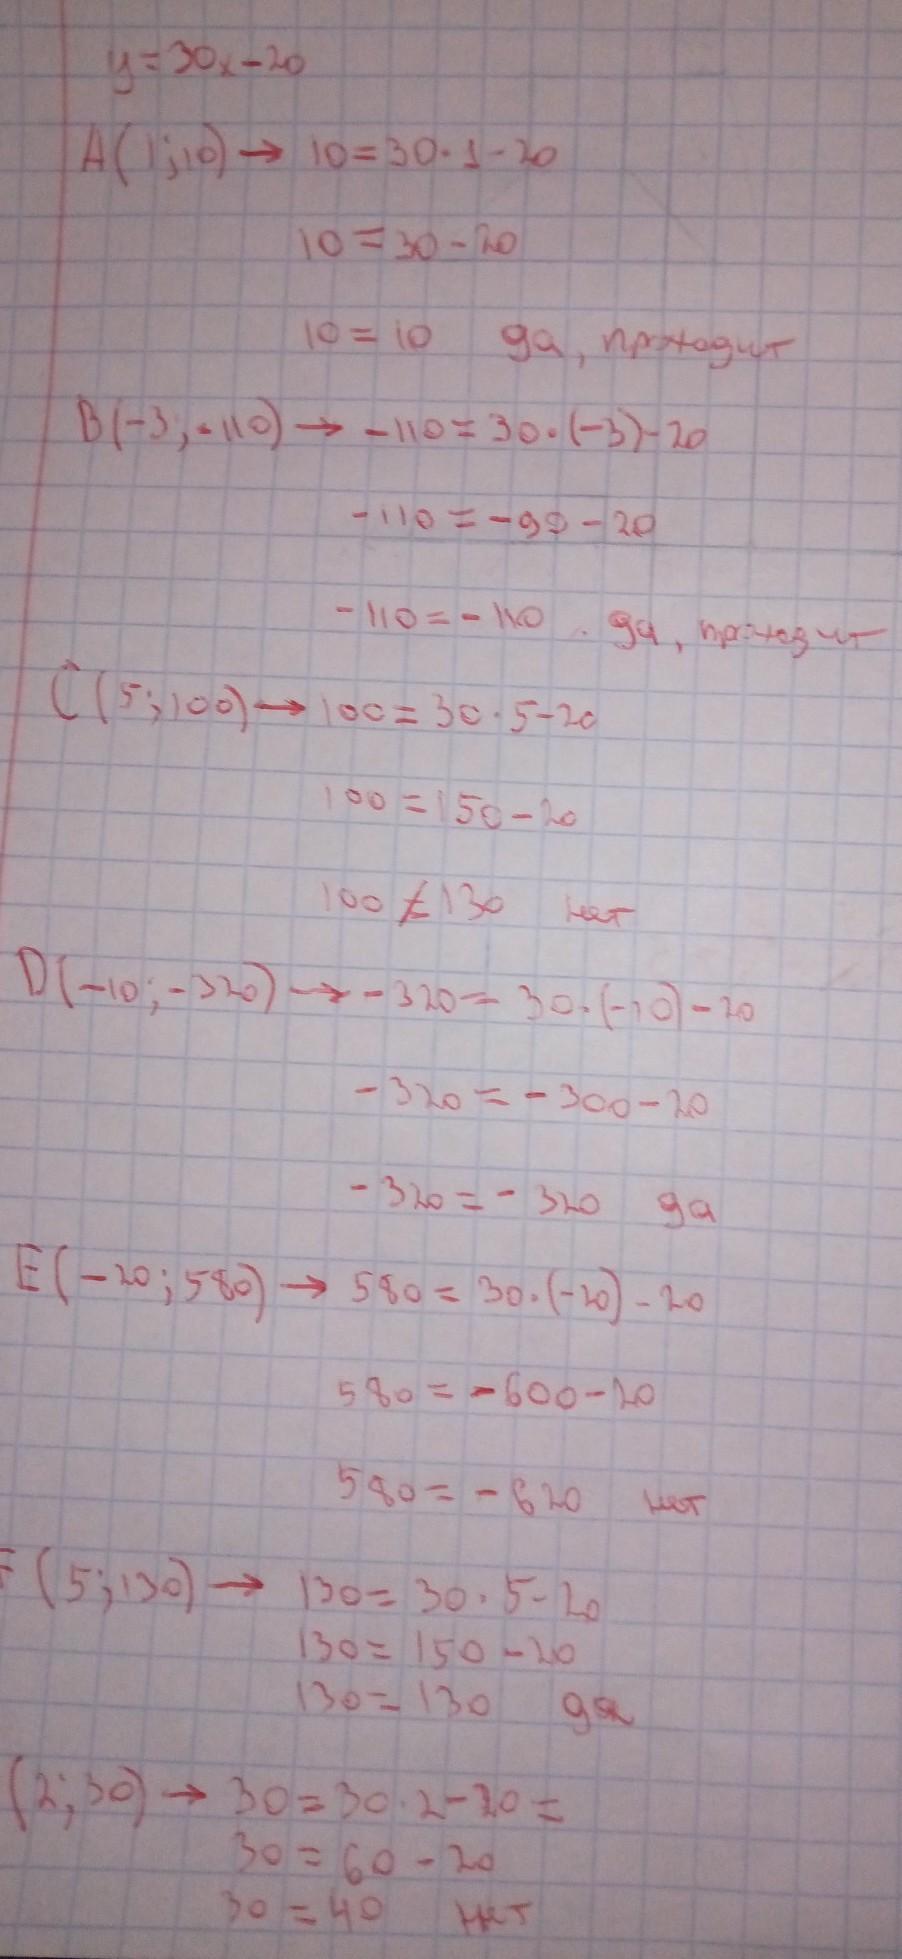 y=30x-20
A(1;10)→ 10=30·1-20
10=30-20
10=10 да, проходит
B(-3;-110)→ -110=30·(-3)-20
-110=-90-20
-110=-110. да, проходит
C(5;100)→100=30·5-20
100=150-20
100≠130 нет
D(-10;-320)→-320=30·(-10)-20
-320=-300-20
-320=-320 да
E(-20;580)→ 580=30·(-20)-20
580=-600-20
580=-620 нет
F(5;130)→ 130=30·5-20
130=150-20
130=130 да
(2;30)→ 30=30·2-20=
30=60-20
30=40 нет